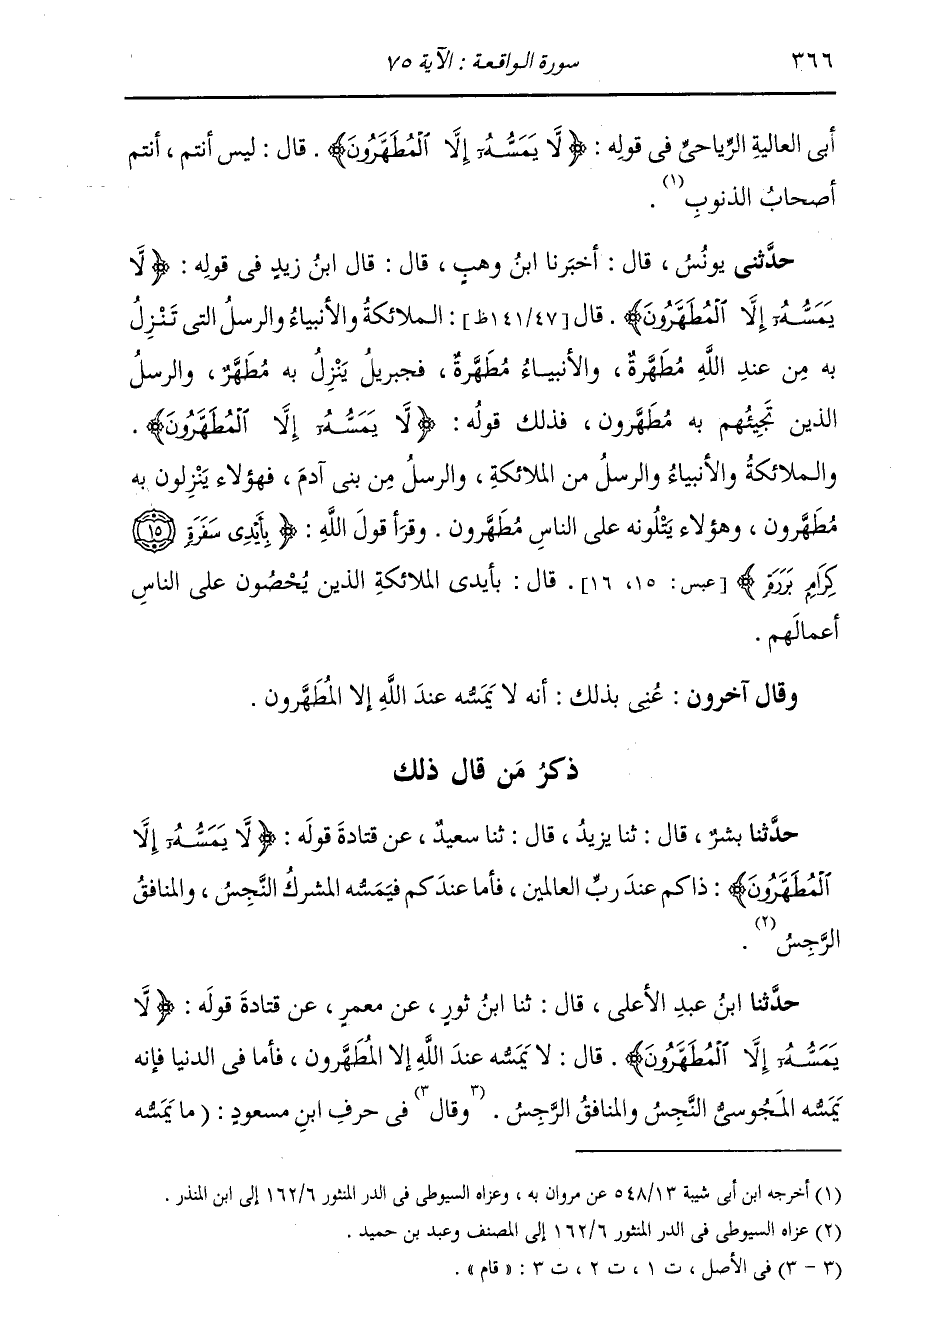 ٣٦٦ سورة الواقعة : الآية ٧٥
أبى العاليةِ الرِّياحىِّ فى قولِه : ﴿لَّا يَمَسُّهُۥٓ إِلَّا ٱلْمُطَهَّرُونَ﴾ . قال : ليس أنتم ، أنتم
أصحابُ الذنوبِ(١) .
حدَّثنى يونُسُ ، قال : أخبَرنا ابنُ وهبٍ ، قال : قال ابنُ زيدٍ فى قولِه : ﴿لَّا
يَمَسُّهُۥٓ إِلَّا ٱلْمُطَهَّرُونَ﴾ . قال [٤٧/١٤١ظ] : الملائكةُ والأنبياءُ والرسلُ التى تَنْزِلُ
به مِن عندِ اللَّهِ مُطَهَّرةٌ ، والأنبياءُ مُطَهَّرةٌ ، فجبريلُ يَنْزِلُ به مُطَهَّرٌ ، والرسلُ
الذين تَجِيئُهم به مُطَهَّرون ، فذلك قولُه : ﴿لَّا يَمَسُّهُۥٓ إِلَّا ٱلْمُطَهَّرُونَ﴾ .
والملائكةُ والأنبياءُ والرسلُ من الملائكةِ ، والرسلُ مِن بنى آدمَ ، فهؤلاء يَنْزِلون به
مُطَهَّرون ، وهؤلاء يَتْلُونه على الناسِ مُطَهَّرون . وقرَأ قولَ اللَّهِ : ﴿بِأَيْدِى سَفَرَةٍ ١٥
كِرَامٍ بَرَرَةٍ﴾ [عبس : ١٥، ١٦] . قال : بأيدى الملائكةِ الذين يُحْصُون على الناسِ
أعمالَهم .
وقال آخرون : عُنِى بذلك : أنه لا يَمَسُّه عندَ اللَّهِ إلا المُطَهَّرون .
ذكرُ مَن قال ذلك
حدَّثنا بشرٌ ، قال : ثنا يزيدُ ، قال : ثنا سعيدٌ ، عن قتادةَ قولَه : ﴿لَّا يَمَسُّهُۥٓ إِلَّا
ٱلْمُطَهَّرُونَ﴾ : ذاكم عندَ ربِّ العالمين ، فأما عندَكم فيَمَسُّه المشركُ النَّجِسُ ، والمنافقُ
الرَّجِسُ(٢) .
حدَّثنا ابنُ عبدِ الأعلى ، قال : ثنا ابنُ ثورٍ ، عن معمرٍ ، عن قتادةَ قولَه : ﴿لَّا
يَمَسُّهُۥٓ إِلَّا ٱلْمُطَهَّرُونَ﴾ . قال : لا يَمَسُّه عندَ اللَّهِ إلا المُطَهَّرون ، فأما فى الدنيا فإنه
يَمَسُّه المَجُوسىُّ النَّجِسُ والمنافقُ الرَّجِسُ . (٣وقال٣) فى حرفِ ابنِ مسعودٍ : ( ما يَمَسُّه
(١) أخرجه ابن أبى شيبة ٥٤٨/١٣ عن مروان به ، وعزاه السيوطى فى الدر المنثور ١٦٢/٦ إلى ابن المنذر .
(٢) عزاه السيوطى فى الدر المنثور ١٦٢/٦ إلى المصنف وعبد بن حميد .
(٣ - ٣) فى الأصل ، ت ١ ، ت ٢ ، ت ٣ : « قام » .